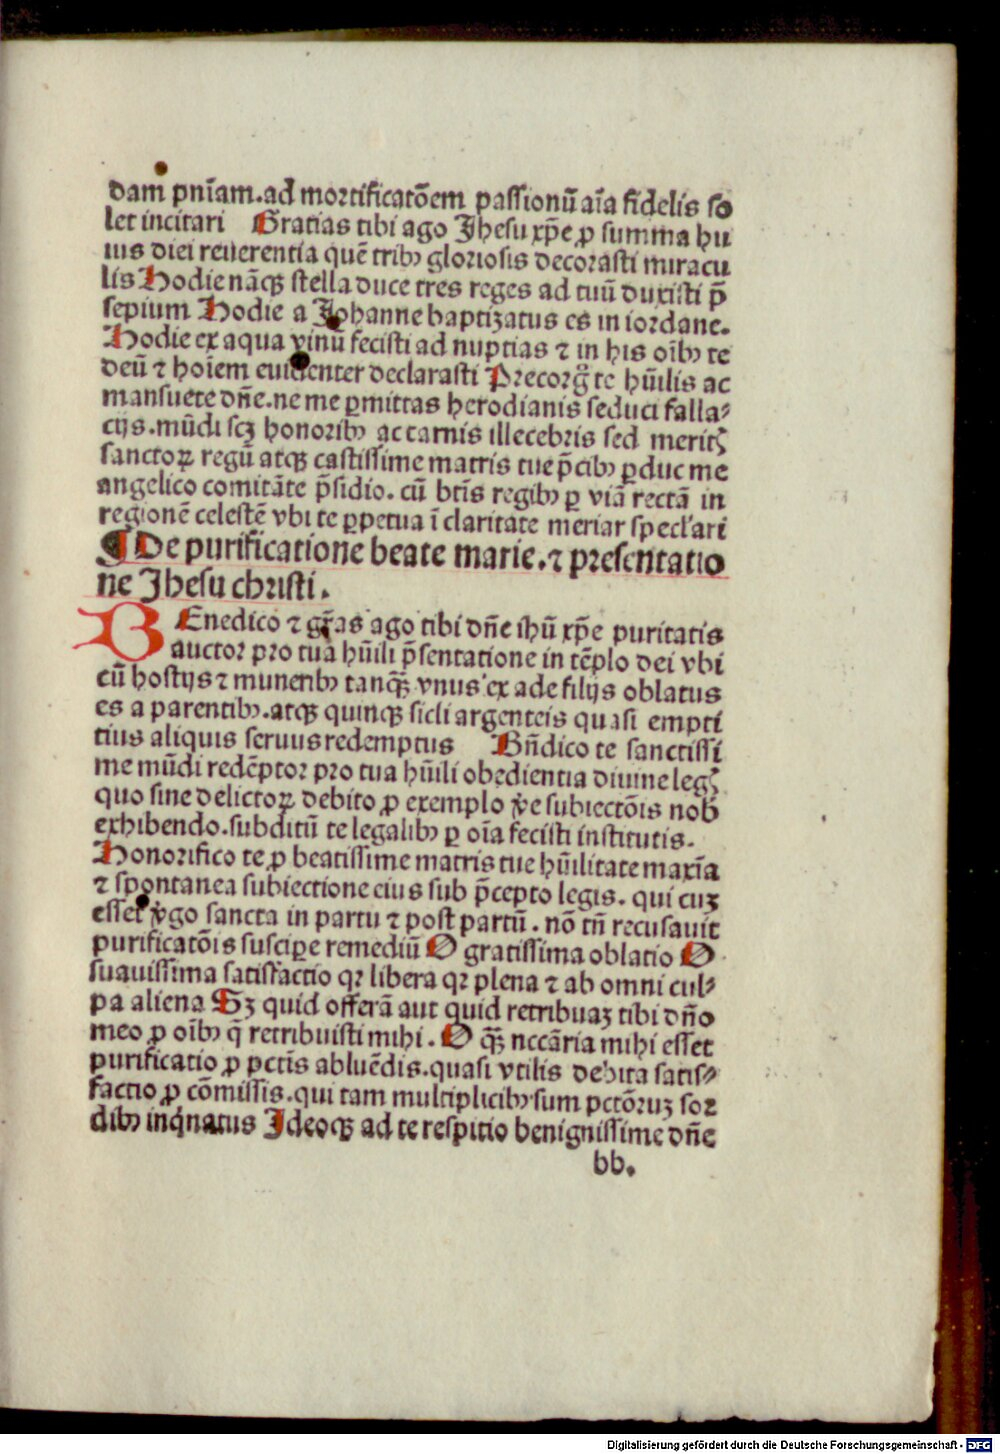 dam pnīam.ad mortificatōem passionū aīa fidelis so
let incitari Gratias tibi ago Jhesu xp̄e ꝓ summa hu
ius diei reuerentia quē tribꝰ gloriosis decorasti miracu
lis Hodie nāqꝫ stella duce tres reges ad tuū duxisti p̄
sepium Hodie a Johanne baptizatus es in iordane.
Hodie ex aqua vinū fecisti ad nuptias ⁊ in his oībꝰ te
deū ⁊ hoīem euidenter declarasti Precorg̃ te hūilis ac
mansuete dn̄e.ne me ꝑmittas herodianis seduci falla⸗
cijs.mūdi scꝫ honoribꝰ ac carnis illecebris sed meritꝭ
sanctoꝝ regū atqꝫ castissime matris tue p̄cibꝰ ꝑduc me
angelico comitāte p̄sidio. cū btīs regibꝰ ꝑ viā rectā in
regionē celestē vbi te ꝑpetua ī claritate meriar spec̄lari
¶ De purificatione beate marie.⁊ presentatio
ne Jhesu christi.
BEnedico ⁊ gr̄as ago tibi dn̄e ihū xp̄e puritatis
auctor pro tua hūili p̄sentatione in tēplo dei vbi
cū hostijs ⁊ muneribꝰ tanqꝫ̄ vnus ex ade filijs oblatus
es a parentibꝰ.atqꝫ quinqꝫ sicli argenteis quasi empti
tius aliquis seruus redemptus Bn̄dico te sanctissi
me mūdi redēptor pro tua hūili obedientia diuine legꝭ
quo sine delictoꝝ debito ꝓ exemplo v̄e subiectōis nob̄
exhibendo.subditū te legalibꝰ ꝑ oīa fecisti institutis.
Honorifico te ꝓ beatissime matris tue hūilitate maxīa
⁊ spontanea subiectione eius sub p̄cepto legis. qui cuꝫ
esset v̄go sancta in partu ⁊ post partū. nō tn̄ recusauit
purificatōis suscipe remediū O gratissima oblatio O
suauissima satisfactio qꝛ libera qꝛ plena ⁊ ab omni cul⸗
pa aliena Sꝫ quid offerā aut quid retribuaꝫ tibi dn̄o
meo ꝓ oībꝰ q̄ retribuisti mihi. O qꝫ̄ nccāria mihi esset
purificatio ꝓ pctīs abluēdis.quasi vtilis debita satis⸗
factio ꝓ cōmissis.qui tam multiplicibꝰ sum pctōruꝫ sor
dibꝰ inq̇natus Jdeoqꝫ ad te respitio benignissime dn̄e
bb.
Digitalisierung gefördert durch die Deutsche Forschungsgemeinschaft - DFG